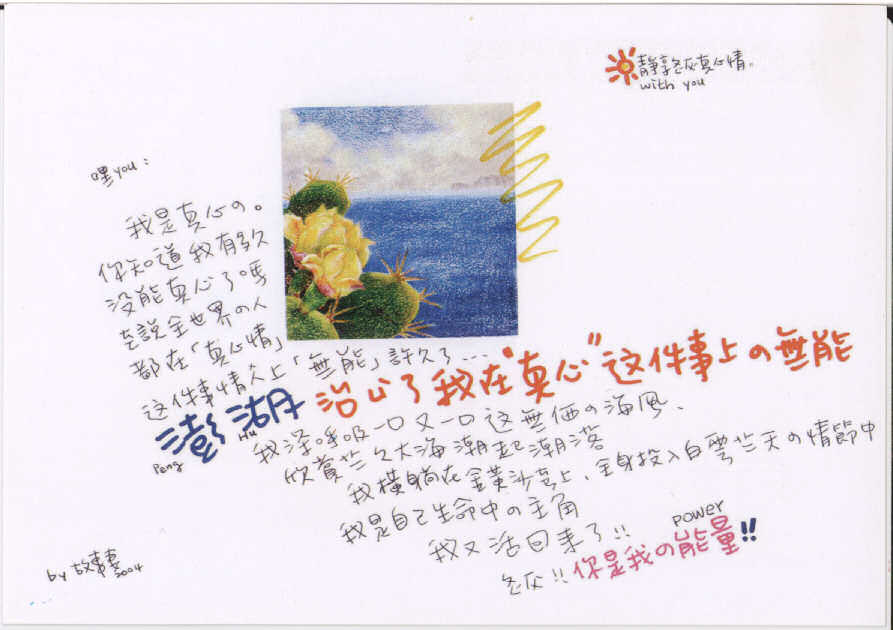 靜享灰真心情。
with you
嘿you：
我是真心の。
你知道我有多久
沒能真心了嗎
去說全世界の人
都在「真心情」
這件事情久上「無能」許久了…
澎湖治了我在"真心"这件事上の無能
Peng Hu
我深呼吸一口又一口这無価の海風、
欣賞大海潮起潮落
我橫躺在金黃沙灘上、全身投入白雲天の情節中
我是自己生命中の主角
我又活回来了!!
power
!!你是我の能量!!
by 故事妻 2004